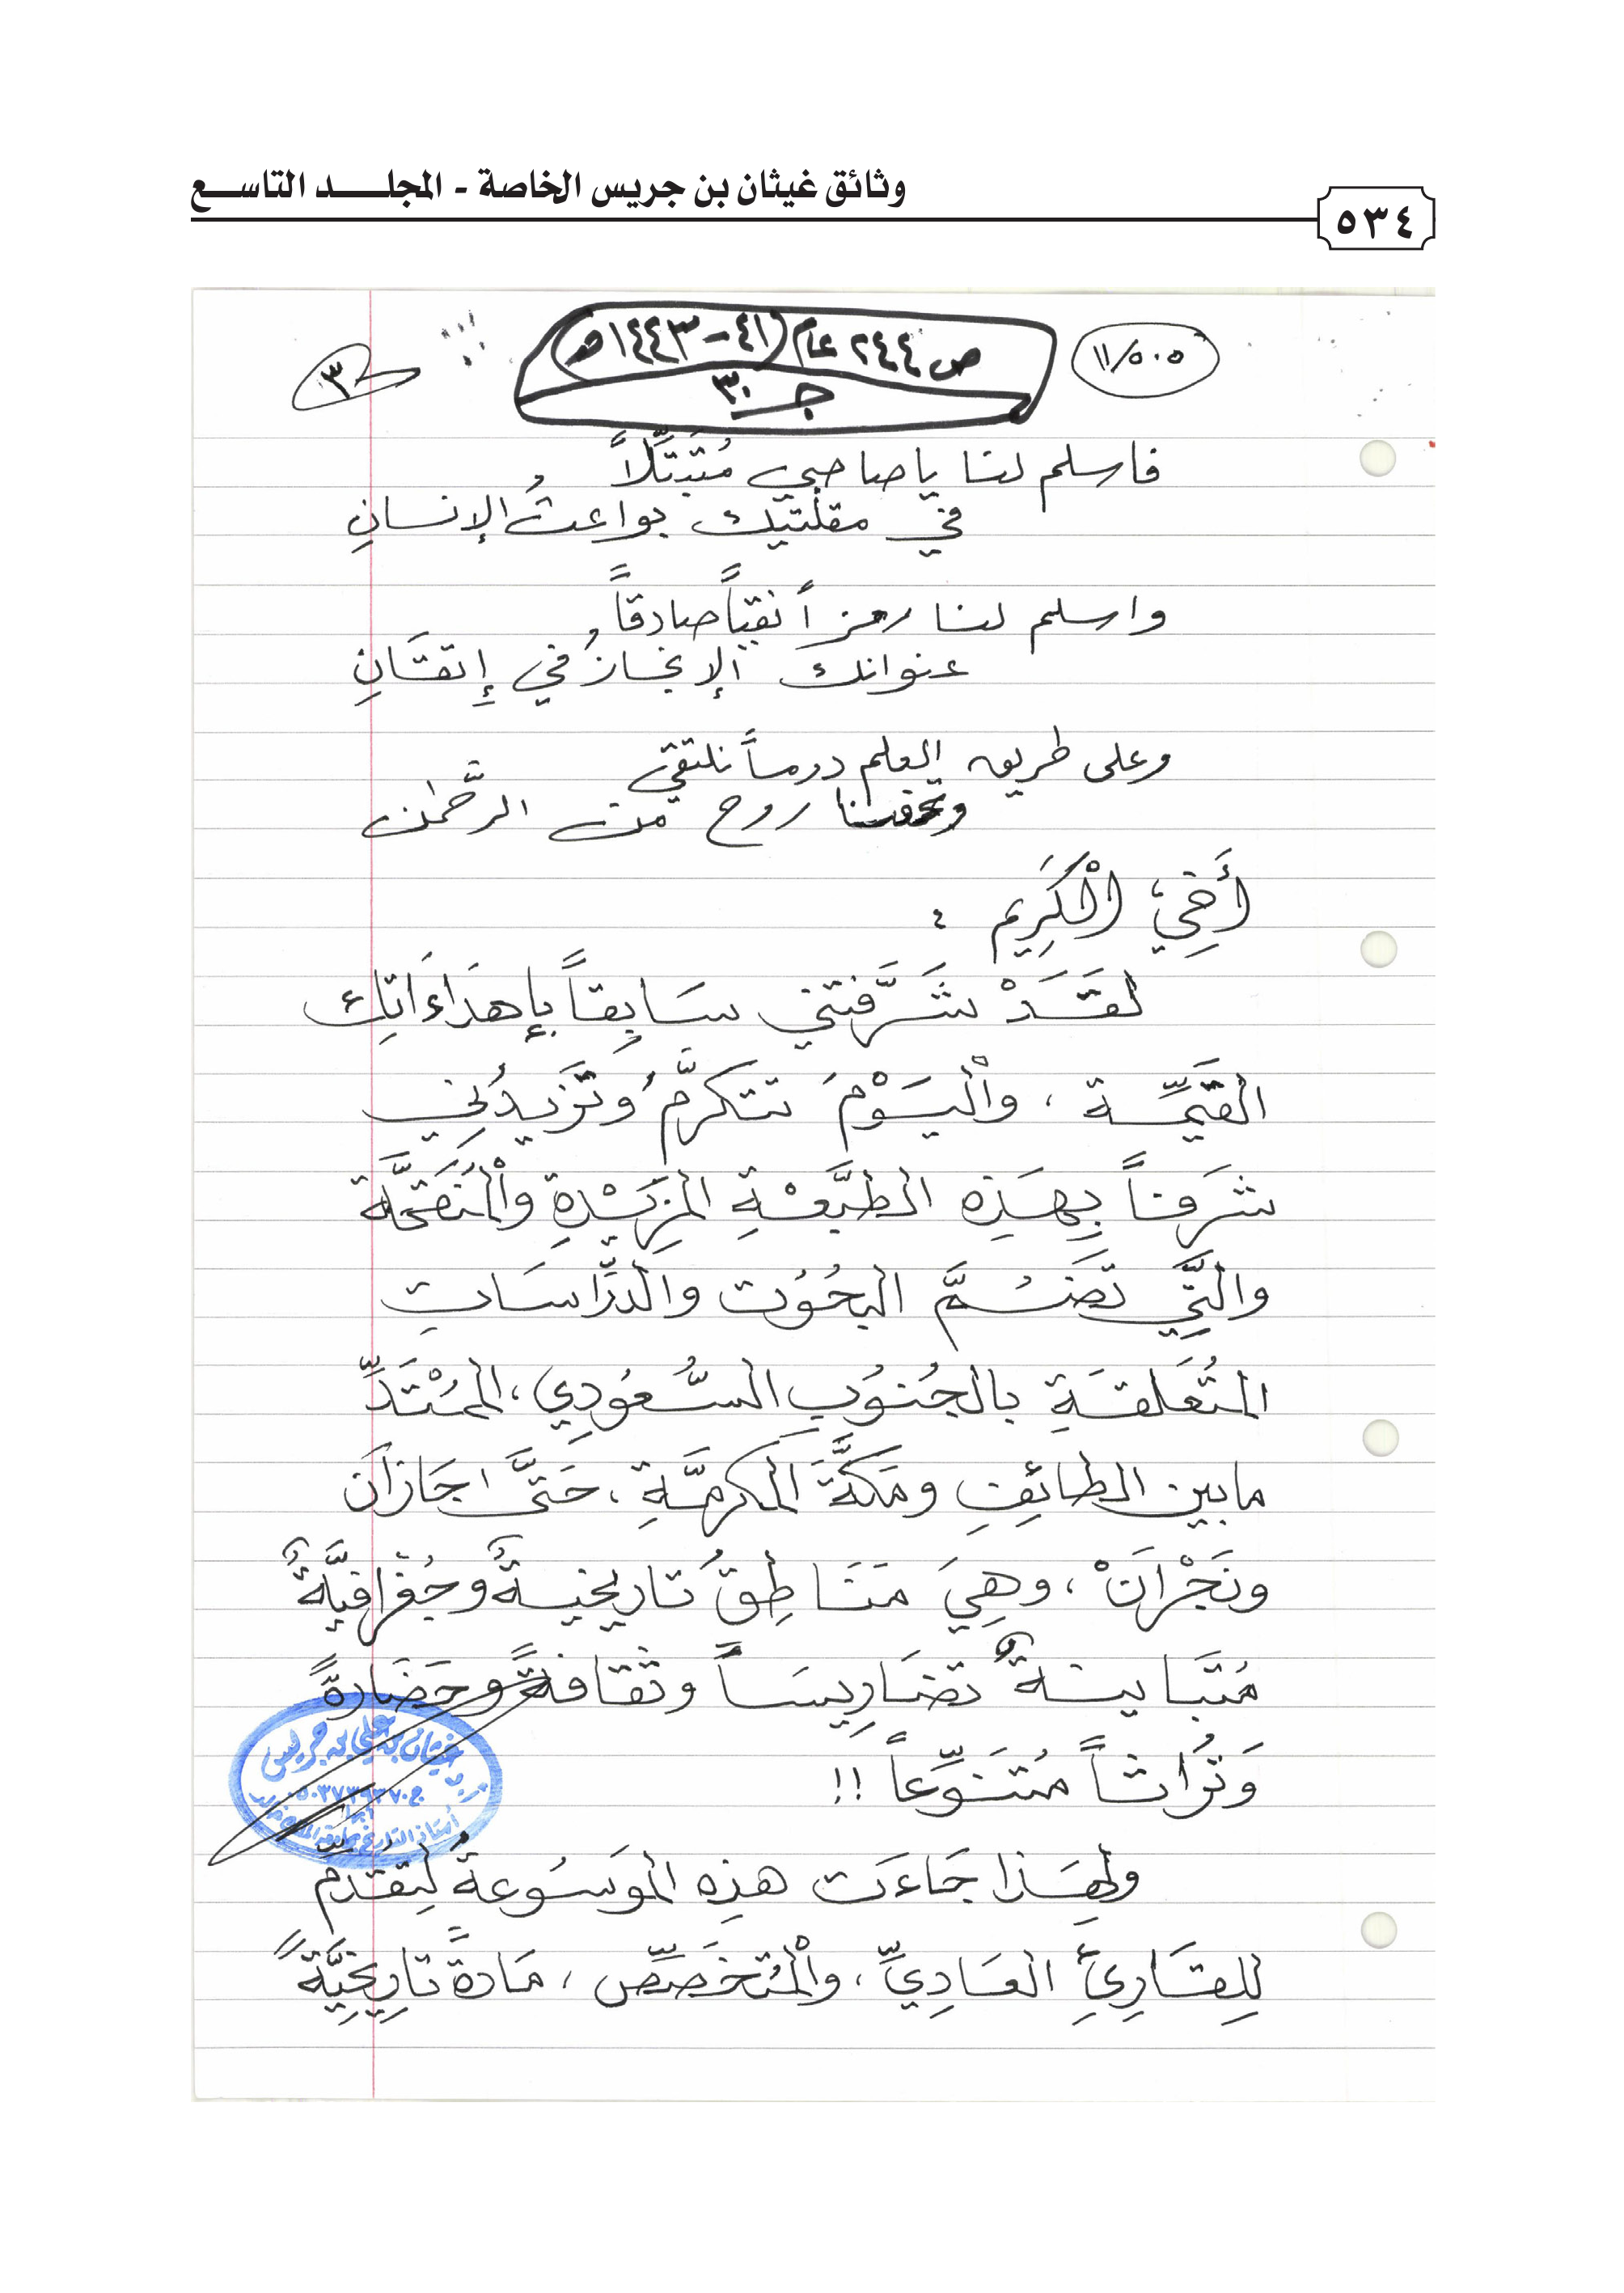 وثائق غيثان بن جريس الخاصة - المجلـــــد التاســـع
٥٣٤
١١/٥٠٥
ص ٢٤٤ عام (٤١-١٤٤٣هـ)
جـ ٣٠
٣
فاسلم لنا يا صاحبي مُتَبَتِّلاً
في مقلتيك بواعثُ الإنسانِ
واسلم لنا رمزاً نقيّاً صادقاً
عنوانك الإنجازُ في إتقَانِ
وعلى طريق العلم دوماً نلتقي
وتحفنا روح من الرَّحمٰن
أَخِي الْكَرِيم ؛
لقَدْ شَرَّفتني سَابِقاً بإهدَاءَاتِك
القيِّمة ، والْيَوْمَ تتكرَّمُ وتَزيدُني
شرَفاً بِهَذِه الطبَّعْةِ المزِيْدَةِ والْمُنَقَّحَة
والتَّي تضَمُّ البحُوُث والدِّراسَاتِ
المتُعَلقَةِ بالجنُوُبِ السَّعُودِي ، الممُتَدِّ
مابين الطائِفِ ومَكَّةَ المكرمَّةِ ، حَتىَّ جَازَانَ
ونَجْرَانْ ، وهِيَ مَنَاطِقُ تاريخيةٌ وجُغرافيَّةٌ
مُتبَاينةٌ تضَارِيسَاً وثقافةً وحَضَارةً
وَتُراثاً مُتنَوِّعاً !!
ولهَذا جَاءَت هذِه الموَسُوعةُ لِتقدِّمَ
لِلقَارِئِ العَادِيِّ ، والْمُتخَصِّص ، مَادةً تارِيخِيَّةً
غيثان بن علي بن جريس